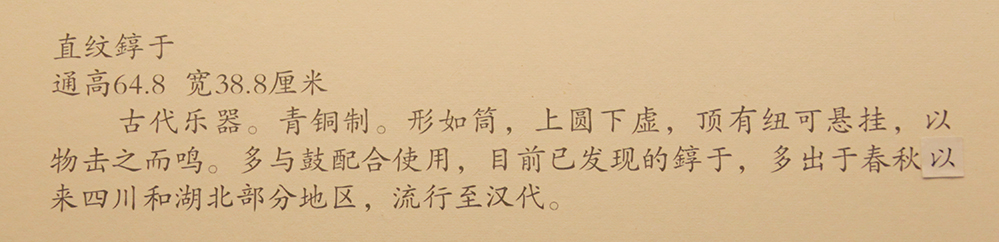 直纹錞于
通高64.8 宽38.8厘米
古代乐器。青铜制。形如筒，上圆下虚，顶有纽可悬挂，以
物击之而鸣。多与鼓配合使用，目前已发现的錞于，多出于春秋以
来四川和湖北部分地区，流行至汉代。